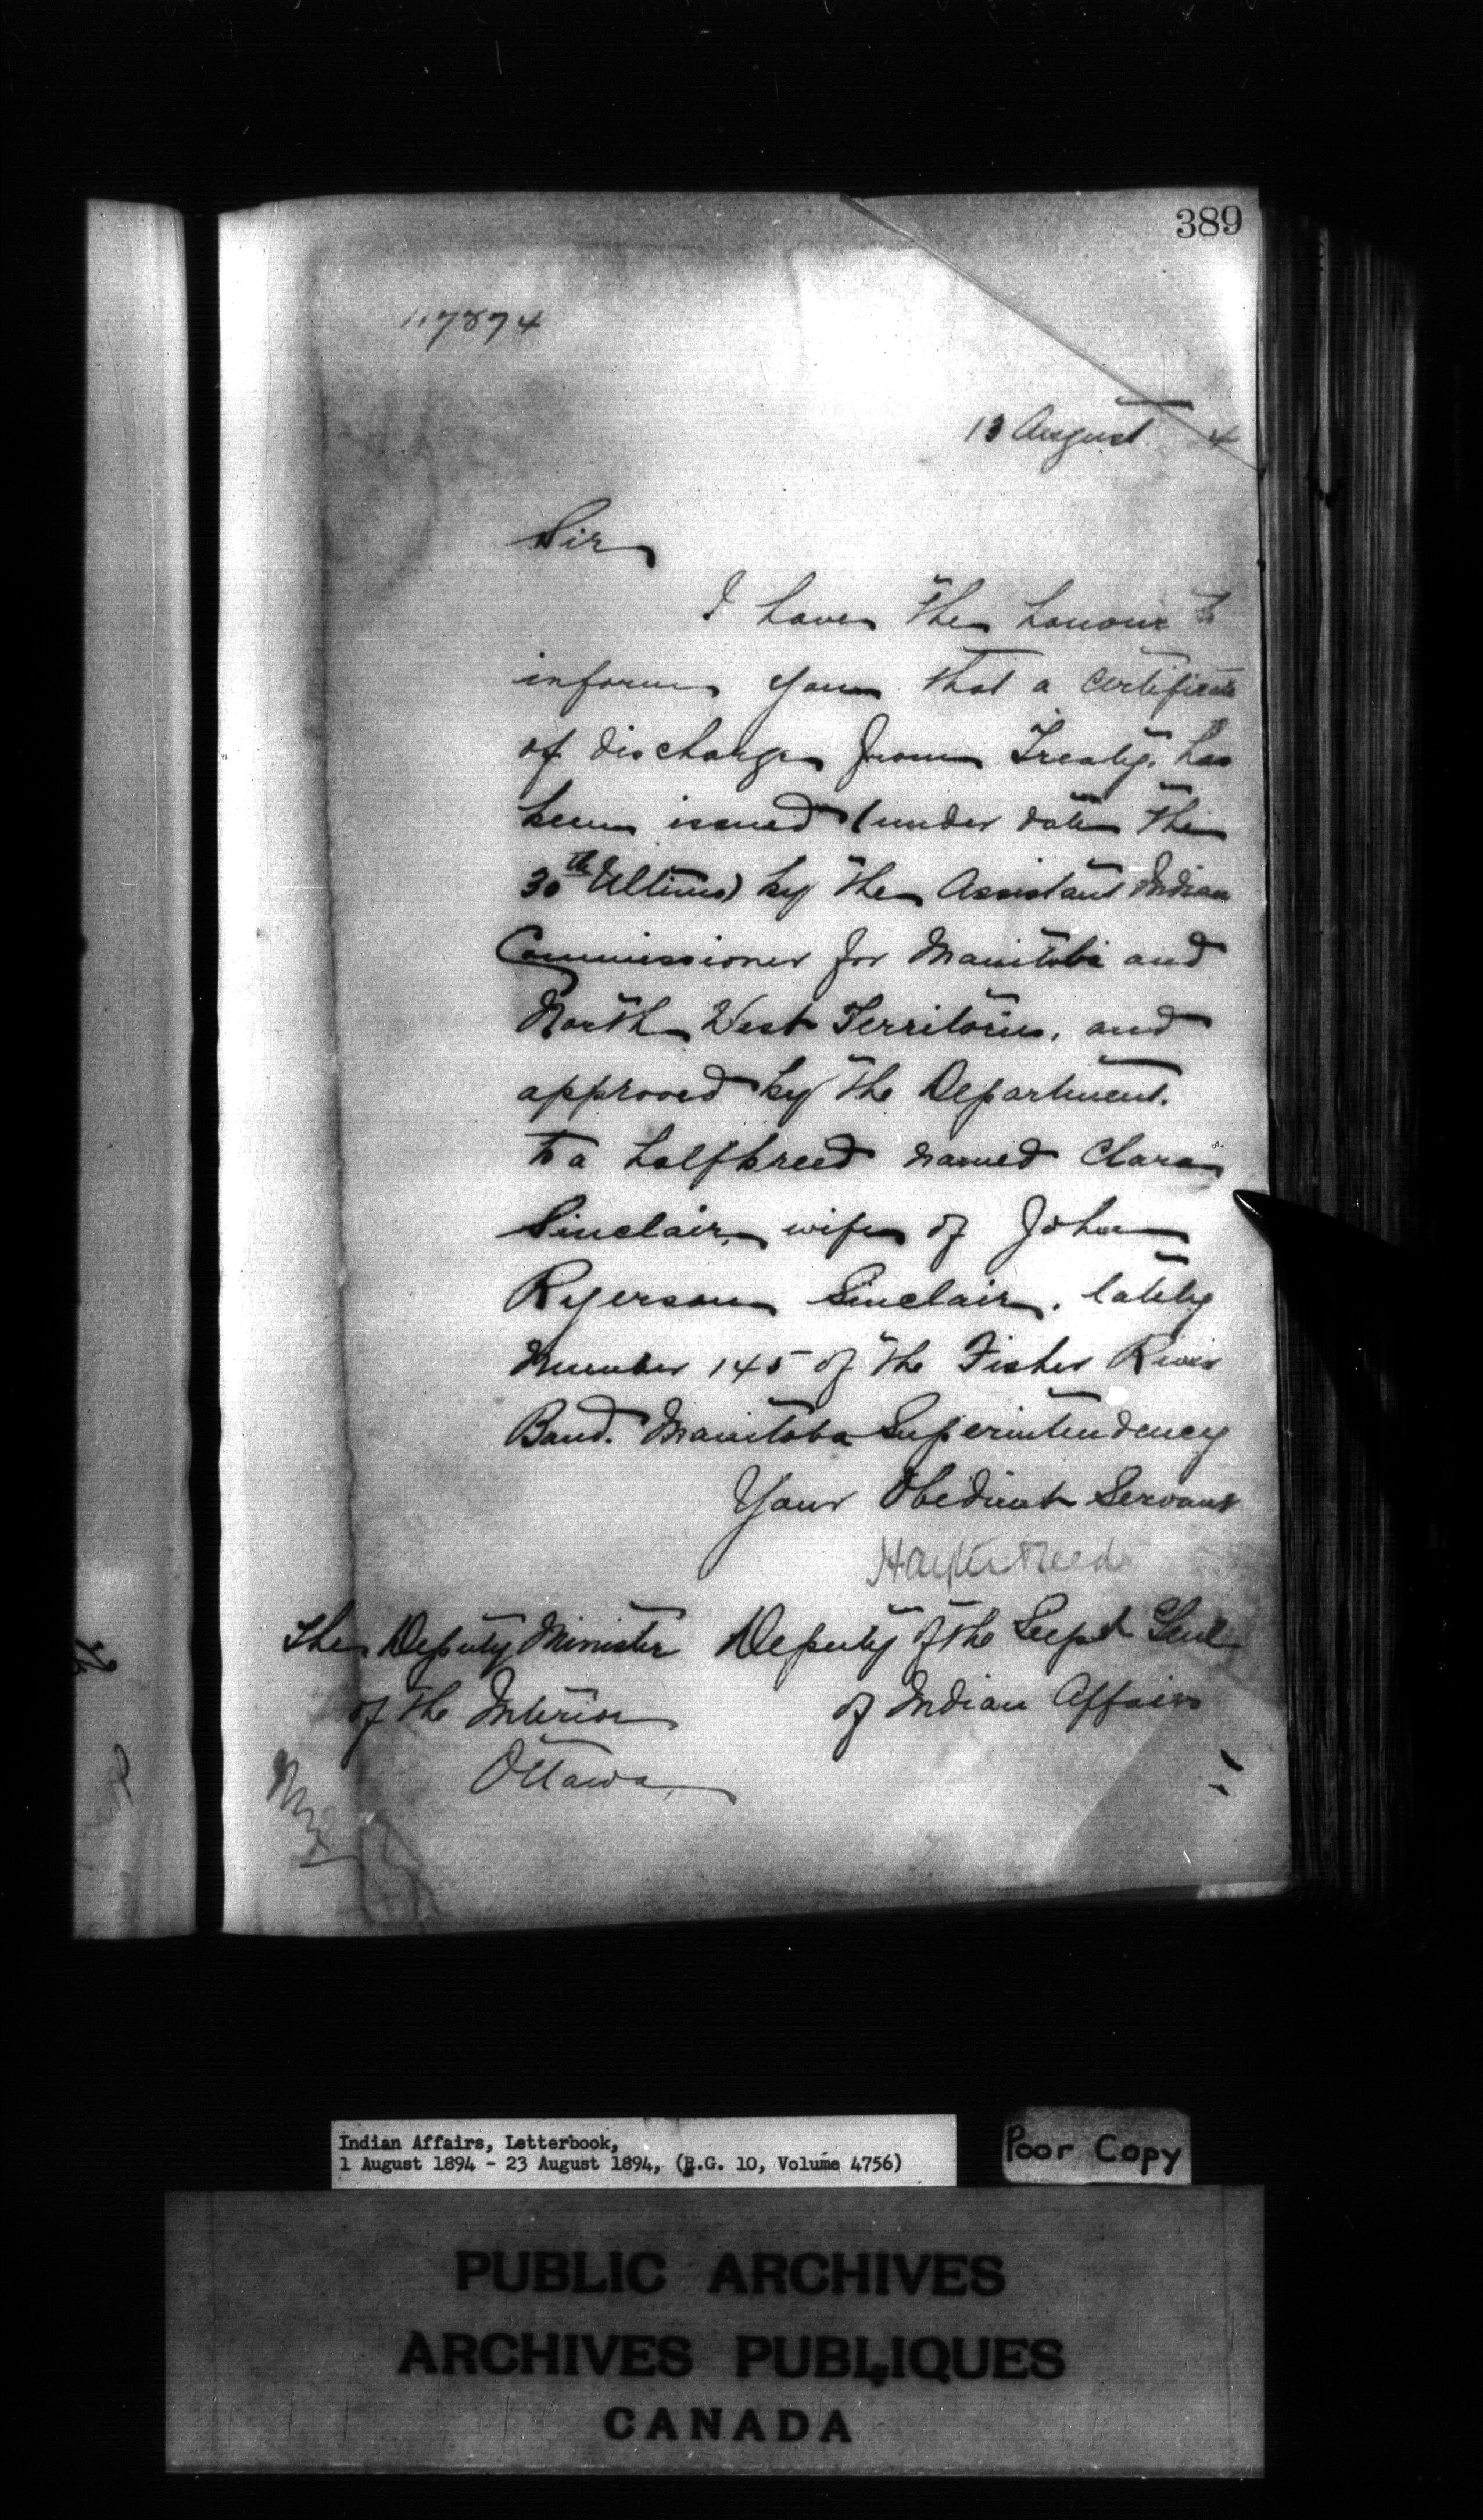 389
117874
13 August 4
Sir
I have the honour to
inform you that a certificate
of discharge from Treaty, has
been issued (under date the
30th Ultimo) by the Assistant Indian
Commissioner for Manitoba and
North West Territories, and
approved by the Department.
to a halfbreed named Clara
Sinclair, wife of John
Ryerson Sinclair, lately
number 145 of the Fisher River
Band. Manitoba Superintendency
Your Obedient Servant
Hayter Reed
The Deputy Minister Deputy of the Supt Genl
of the Interior of Indian Affairs
Ottawa
Indian Affairs, Letterbook,
1 August 1894 - 23 August 1894, (R.G. 10, Volume 4756)
Poor Copy
PUBLIC ARCHIVES
ARCHIVES PUBLIQUES
CANADA